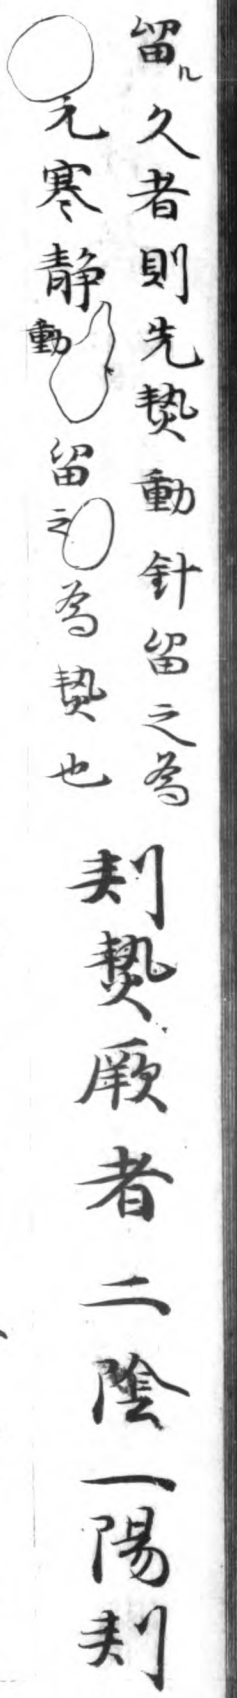 留ル久者則先熱動針留之為
元寒静動留之為熱也
刾熱厥者二陰一陽刾